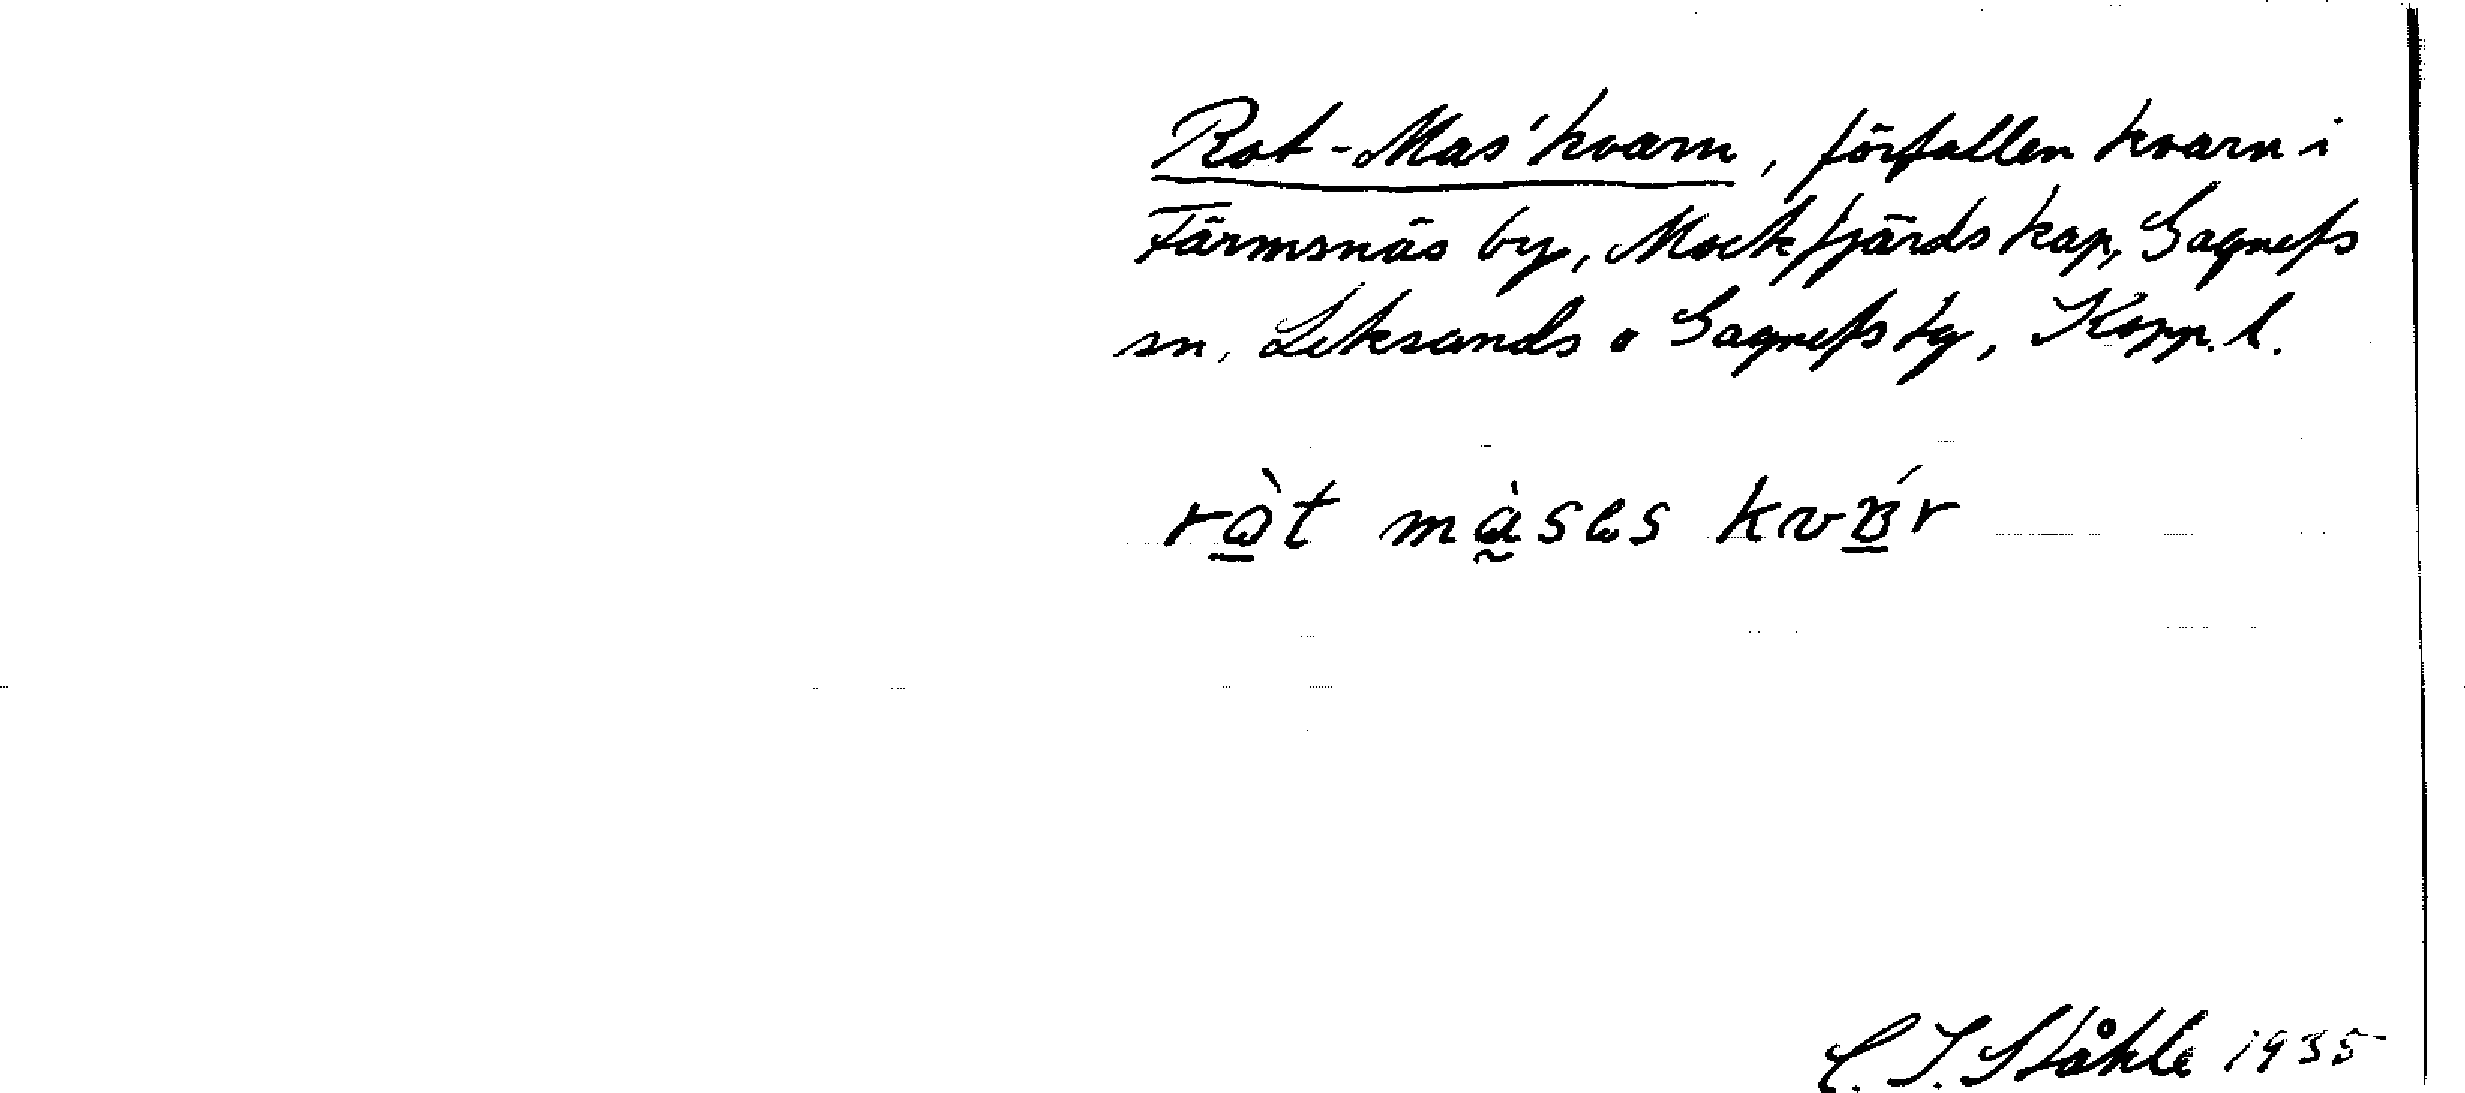 Rot-Mas' kvarn, förfallen kvarn i
Färmsnäs by, Mockfjärds kap, Gagnefs
sn, Leksands o Gagnefs tg, Kopp. l.
ròt màses kvɐ́r
C. I. Ståhle 1935